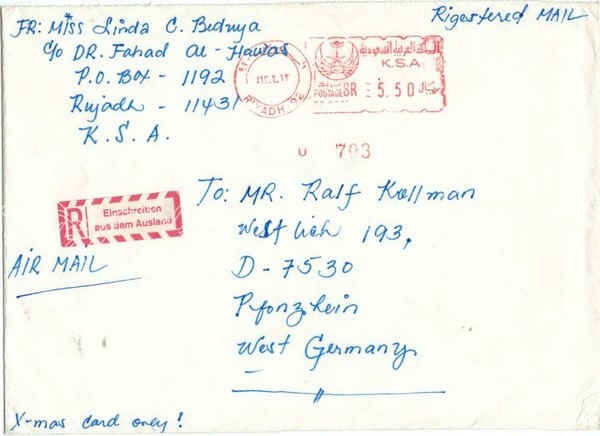 FR: Miss Linda C. Bedruya
c/o DR. Fahad al-Hawas
P.O. Box - 1192
Riyadh - 11431
K.S.A.
Rigestered MAIL
المملكة العربية السعودية
K.S.A.
POSTAGE SR 5.50 ريال
RIYADH
U 703
R Einschreiben
aus dem Ausland
AIR MAIL
To: MR. Ralf Kollman
Westlich 193,
D-7530
Pfonzhein
West Germany
X-mas card only!